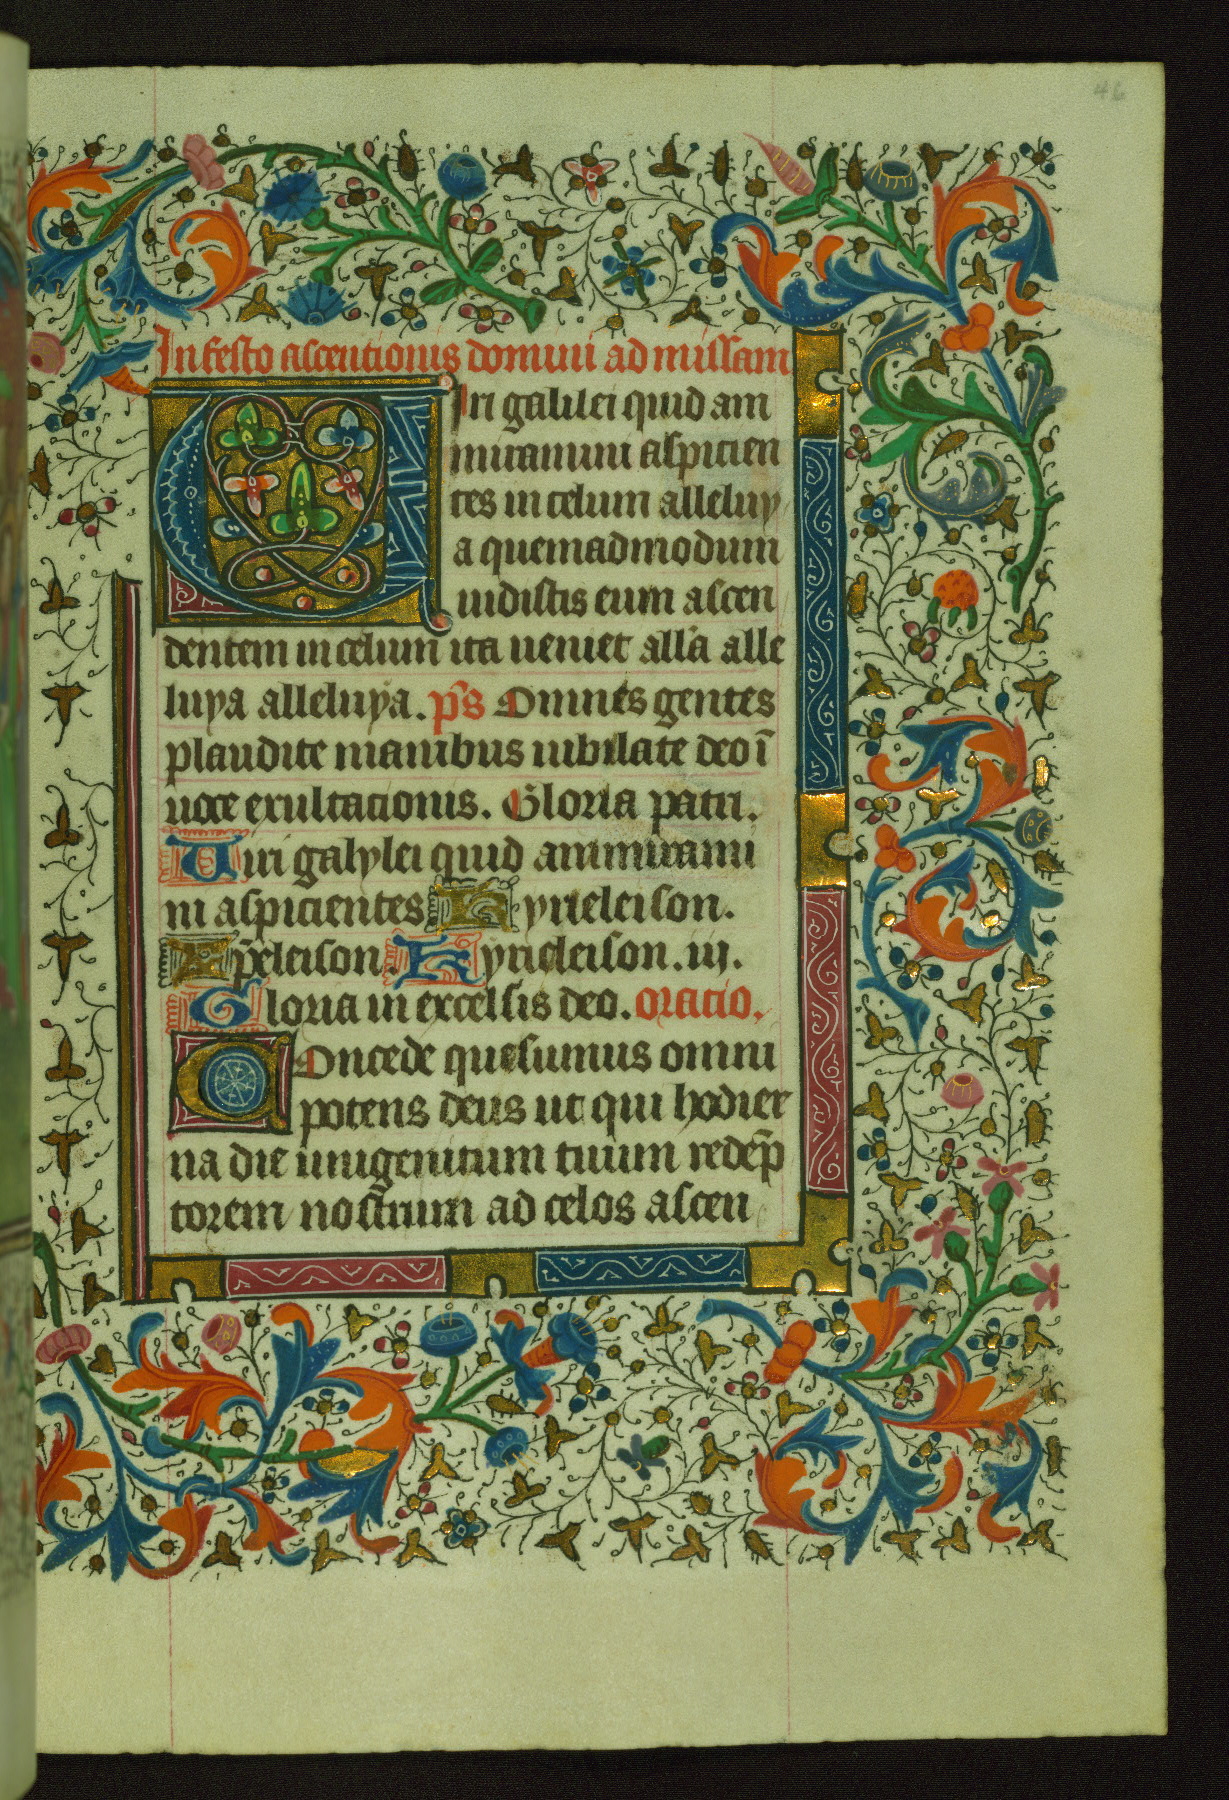 46
In festo ascentionis domini ad missam
Viri galilei quid am
miramini aspicien
tes in celum alleluy
a quemadmodum
uidistis eum ascen
dentem in celum ita ueniet all'a alle
luya alleluya. ps Omnes gentes
plaudite manibus iubilate deo ī
uoce exultacionis. Gloria patri.
Uiri galylei quid ammirami
ni aspicientes Kyrieleison.
Xp̄eleison. Kyrieleison. iij.
Gloria in excelsis deo. oracio.
Concede quesumus omni
potens deus ut qui hodier
na die unigenitum tuum redēp
torem nostrum ad celos ascen